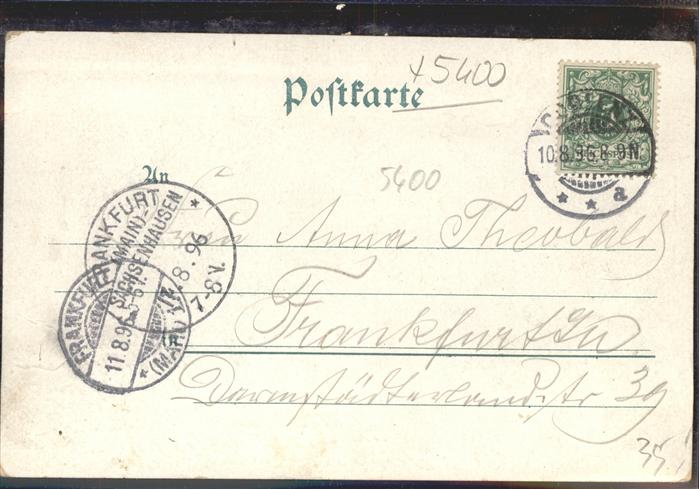 +5400
Postkarte
CASSEL
10.8.96.8-9N.
* * a
An
5400
Frau Anna Theobald
FRANKFURT *
(MAIN)-
SACHSENHAUSEN
11.8.96
7-8V.
FRANKFURT
11.8.96
* (MAIN) 1 *
in
Frankfurt a/M
Darmstädterlandstr 39
35